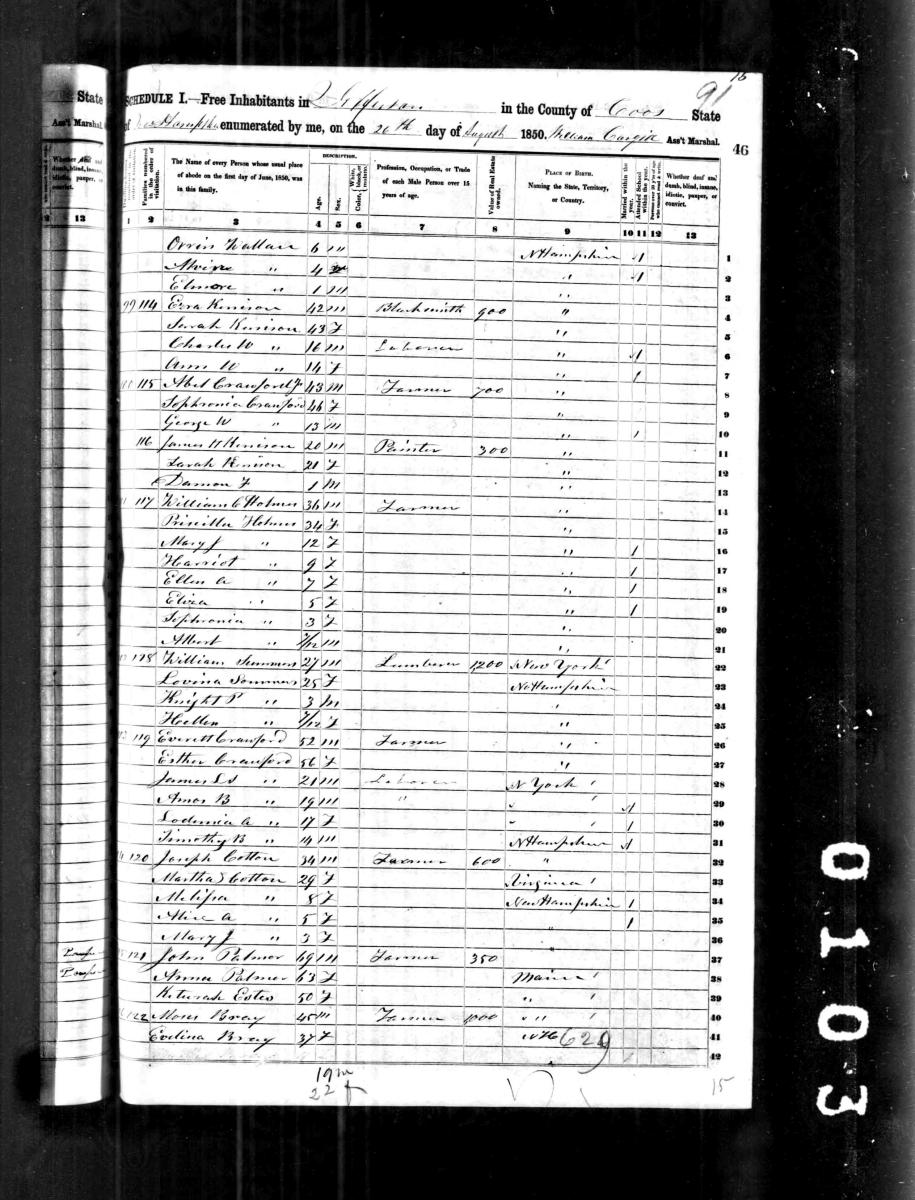 16
91
State
Ass't Marshal.
SCHEDULE I.—Free Inhabitants in Jefferson in the County of Coos State
of New Hampshire enumerated by me, on the 20th day of August 1850. William Cargill Ass't Marshal.
46
DESCRIPTION.
Whether deaf and dumb, blind, insane, idiotic, pauper, or convict.
Families numbered in the order of visitation.
The Name of every Person whose usual place of abode on the first day of June, 1850, was in this family.
Age.
Sex.
Color, White, black, or mulatto.
Profession, Occupation, or Trade of each Male Person over 15 years of age.
Value of Real Estate owned.
PLACE OF BIRTH. Naming the State, Territory, or Country.
Married within the year.
Attended School within the year.
Whether deaf and dumb, blind, insane, idiotic, pauper, or convict.
13 1 2 3 4 5 6 7 8 9 10 11 12 13
Orrin Wallace 6 m N Hampshire 1 1
" 4 m " 1 2
Elmore " 1 m " 3
99 114 Ezra Kenison 42 m Blacksmith 900 " 4
Sarah Kenison 43 f " 5
Charles W " 16 m Laborer " 1 6
Ann W " 14 f " 1 7
115 Abel Crawford Jr 43 m Farmer 700 " 8
Sophronia Crawford 46 f " 9
George W " 13 m " 1 10
116 James H Kenison 20 m Painter 300 " 11
Sarah Kenison 21 f " 12
Damon F 1 m " 13
117 William C Holmes 36 m Farmer " 14
Priscilla Holmes 34 f " 15
Mary J " 12 f " 1 16
Harriot " 9 f " 1 17
Ellen A " 7 f " 1 18
Eliza " 5 f " 1 19
Sophronia " 3 f " 20
Albert " 7/12 m " 21
118 William Summers 27 m Lumberer 1,200 New York 22
Lovina Sommers 25 f N Hampshire 23
Knight P " 3 m " 24
Hellen " 7/12 f " 25
119 Everett Crawford 52 m Farmer " 26
Esther Crawford 56 f " 27
James " 21 m Laborer N York 28
Amos B " 19 m " " 1 29
Lodemia A " 17 f " 1 30
Timothy B " 14 m N Hampshire 1 31
120 Joseph Cotton 34 m Farmer 600 " 32
Martha Cotton 29 f Virginia 33
Melissa " 8 f New Hampshire 1 34
Alice A " 5 f 1 35
Mary J " 3 f " 36
121 John Palmer 69 m Farmer 350 37
Anna Palmer 63 f Maine 38
Keturah Estes 50 f " 39
122 Moses Bray 45 m Farmer 1000 " " 40
Evelina Bray 37 f NH 629 41
42
19 m
22 f
15
0103